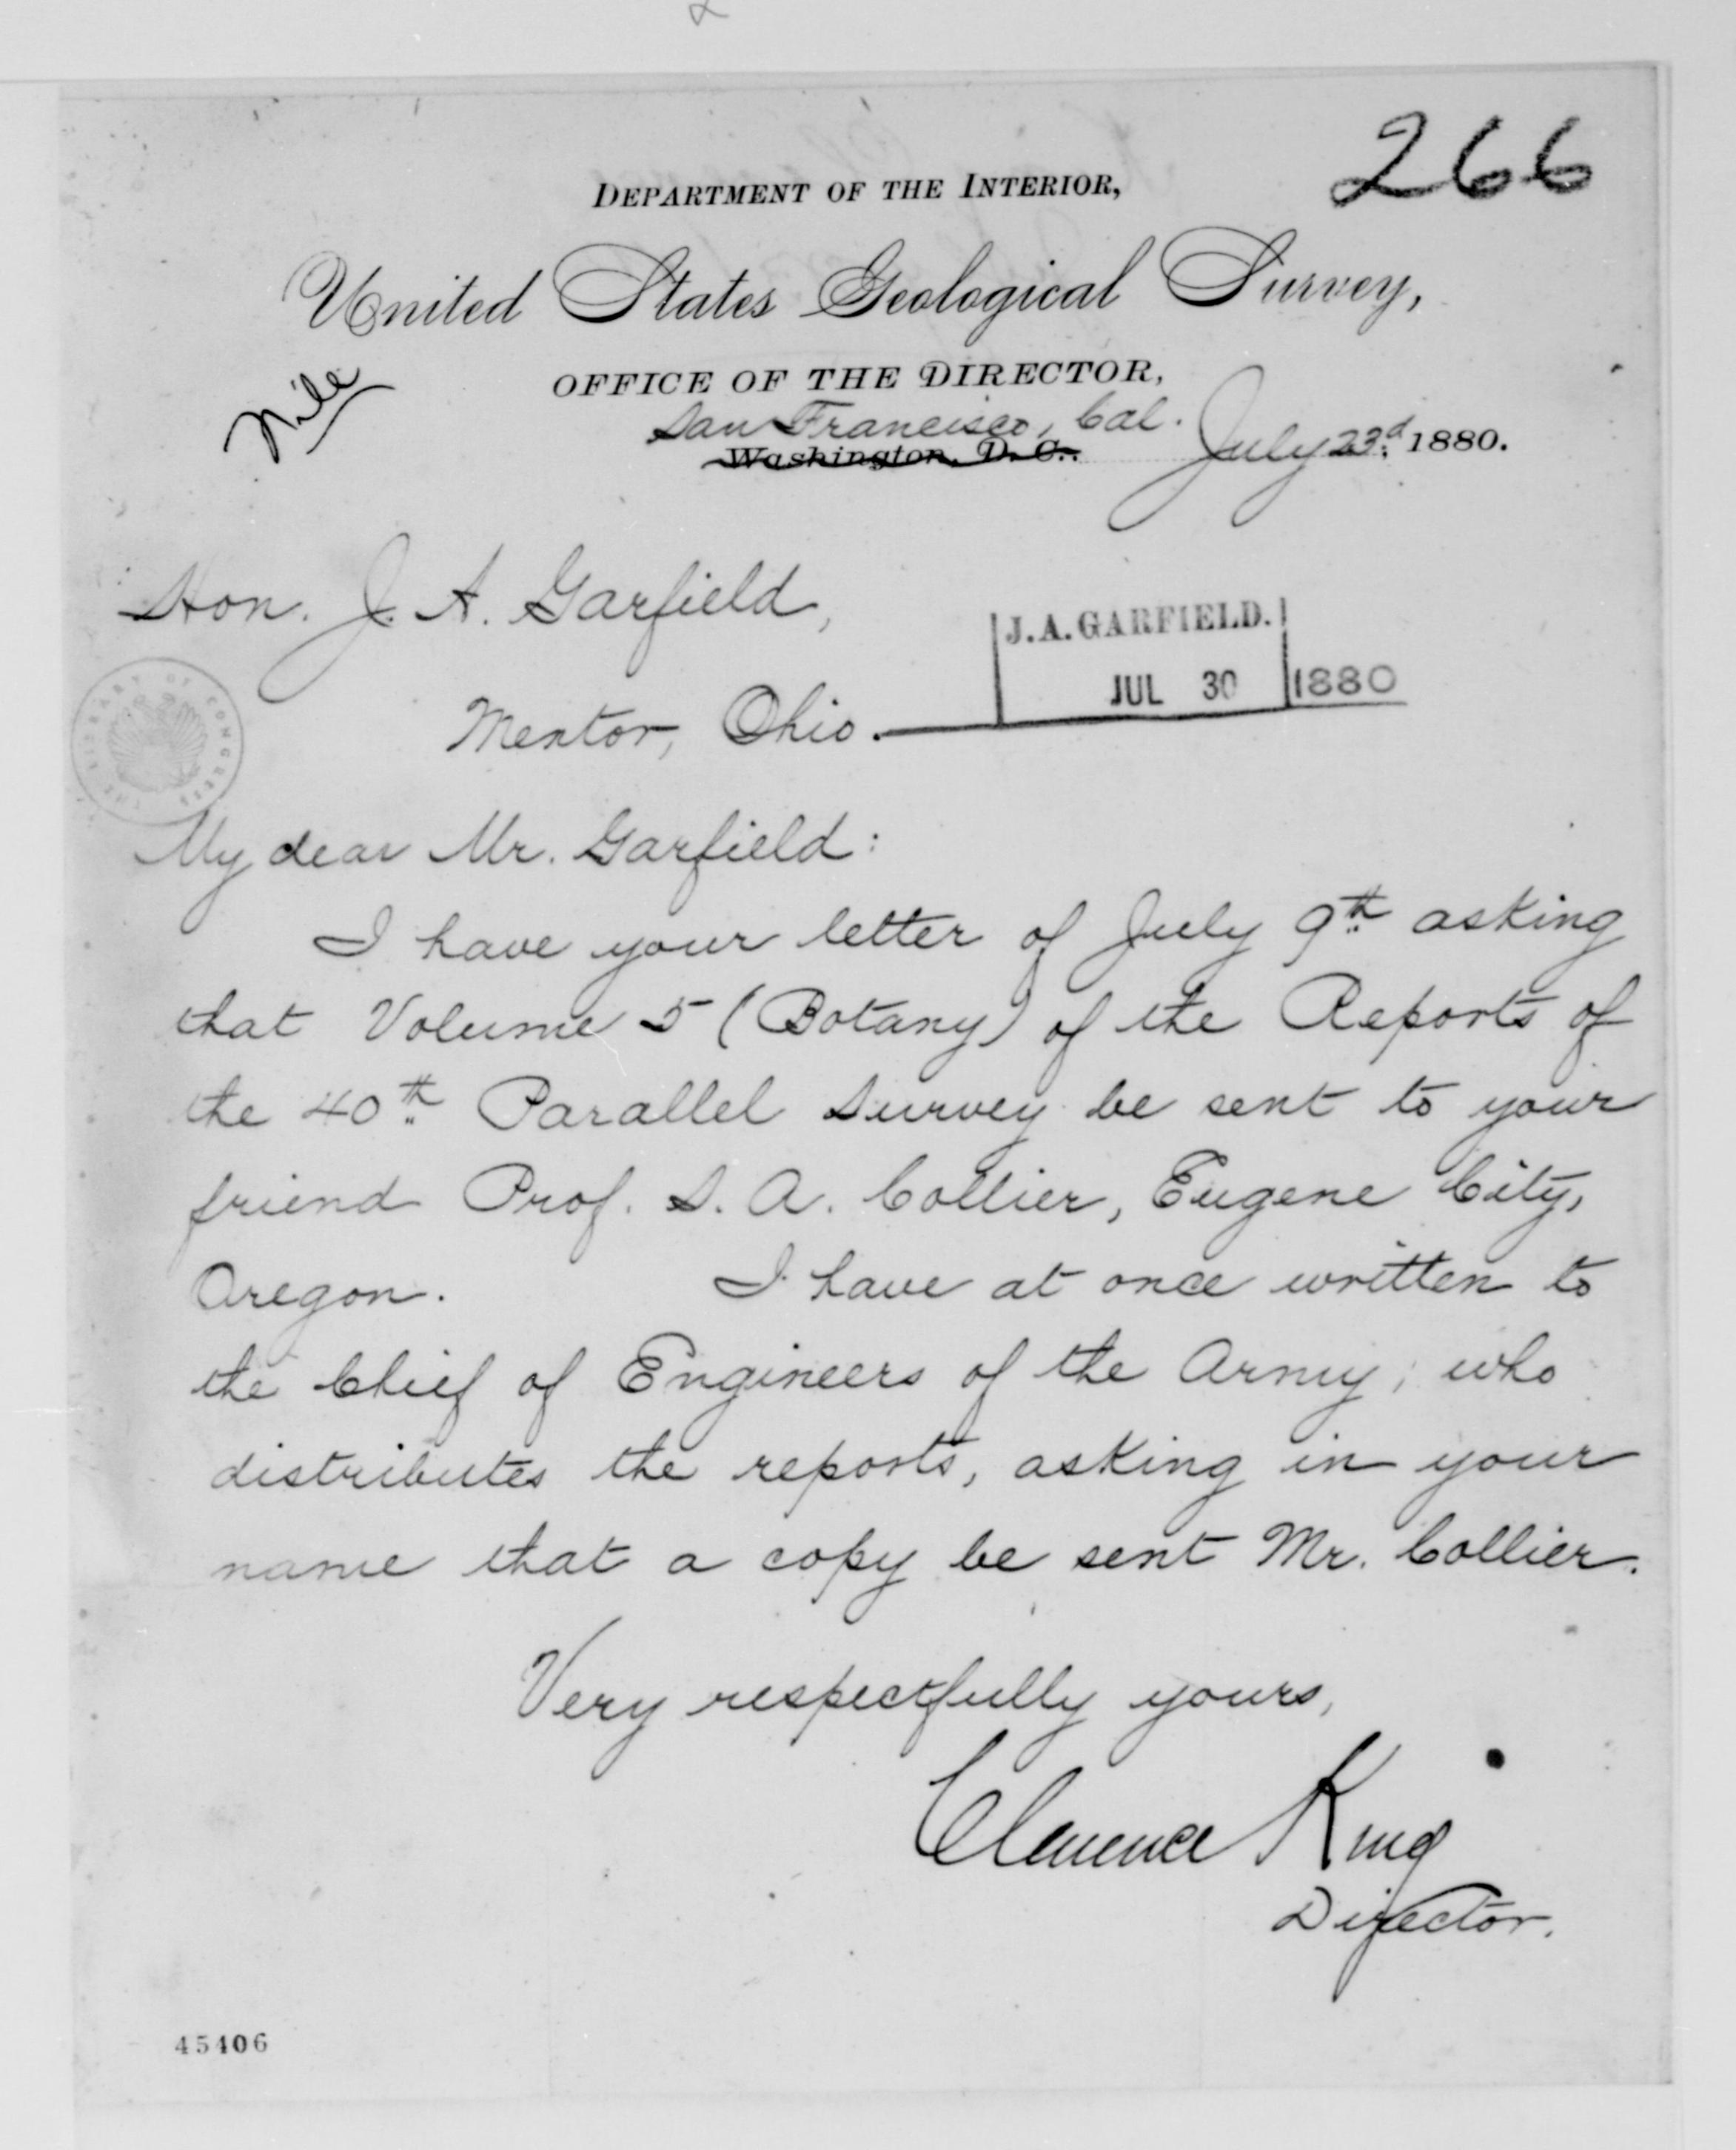 266
DEPARTMENT OF THE INTERIOR,
United States Geological Survey,
OFFICE OF THE DIRECTOR,
San Francisco, Cal.
Washington, D. C., July 23d. 1880.
Hon. J. A. Garfield,
J. A. GARFIELD.
JUL 30 1880
Mentor, Ohio.
THE LIBRARY OF CONGRESS
My dear Mr. Garfield:
I have your letter of July 9th. asking
that Volume 5 (Botany) of the Reports of
the 40th. Parallel Survey be sent to your
friend Prof. S. A. Collier, Eugene City,
Oregon. I have at once written to
the Chief of Engineers of the Army, who
distributes the reports, asking in your
name that a copy be sent Mr. Collier.
Very respectfully yours,
Clarence King
Director.
45406